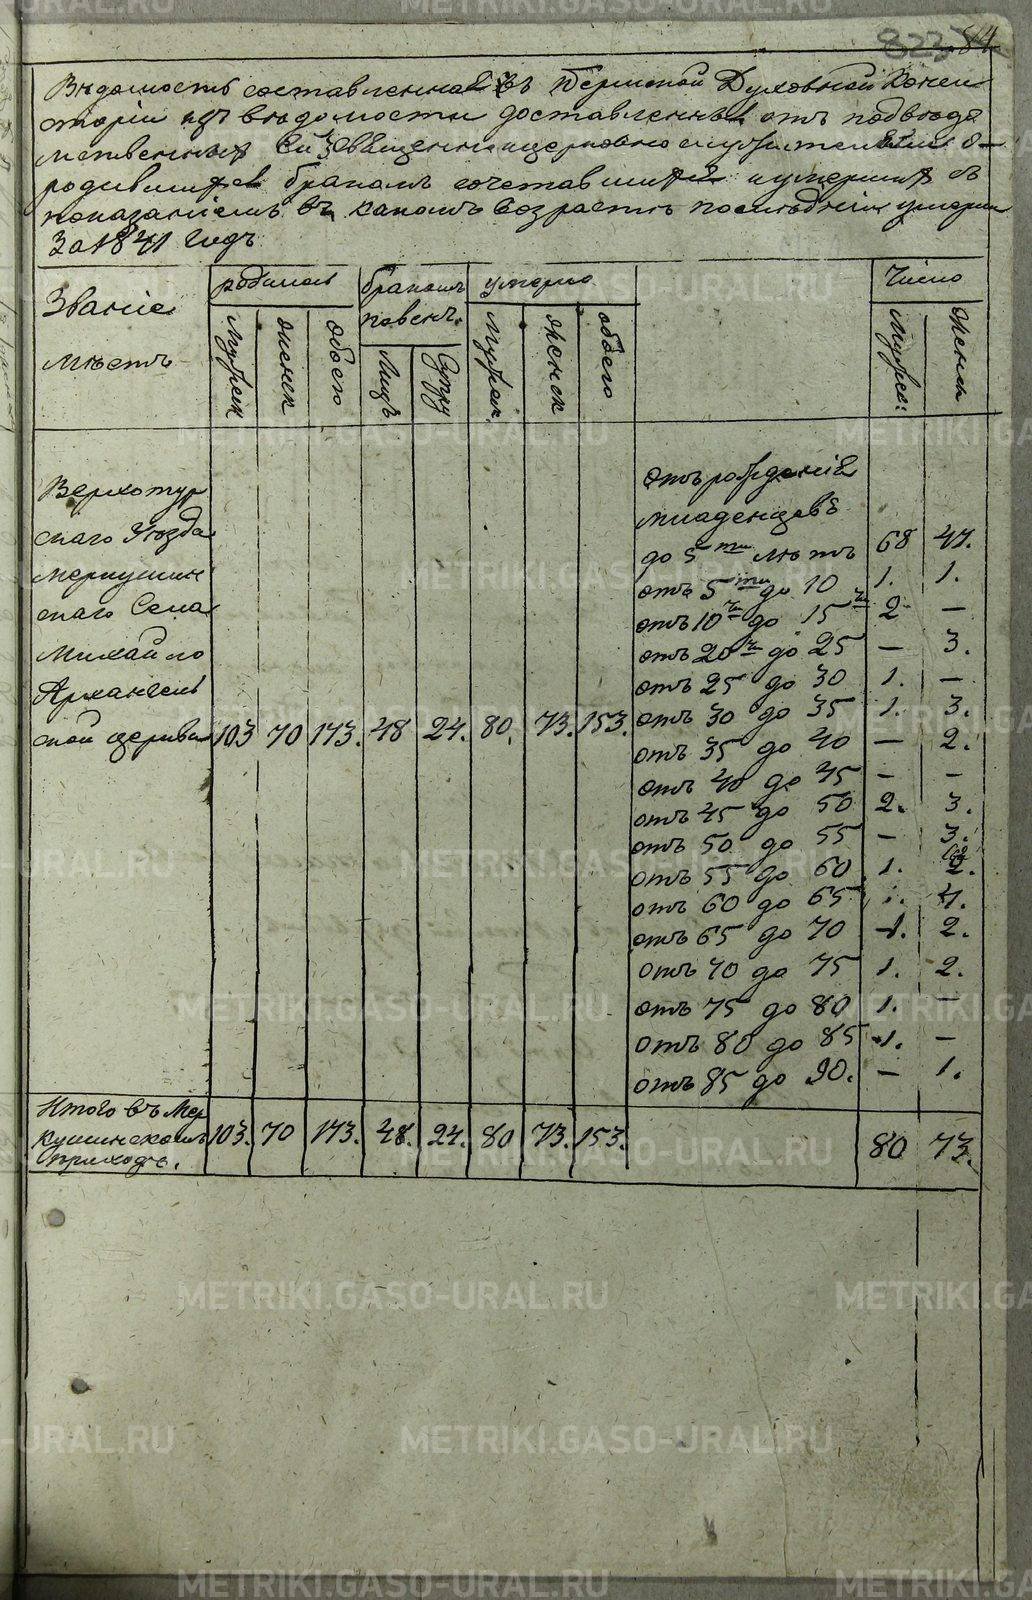 823 84
Вѣдомость составленная въ Пермской Духовной Консис
торіи изъ вѣдомостей доставленныхъ отъ подвѣдо
мственныхъ ей Священноцерковнослужителей о
родившихся бракомъ сочетавшихся и умершихъ съ
показаніемъ въ какомъ возрастѣ послѣдніе умерли
За 1841 годъ
Званіе мѣстъ
родилось
бракомъ повѣнч.
умерло
Число
Мужеск
женск
обоего
Лицъ
Супру
Мужеск.
женск
обоего
Мужес:
женск
Верхотур
скаго Уѣзда
Меркушин
скаго Села
Михайло
Архангель
ской церкви 103 70 173. 48 24. 80. 73. 153.
отъ рожденія
младенцевъ
до 5ти лѣтъ 68 47.
отъ 5ти до 10 1. 1.
отъ 10ти до 15ти 2 —
отъ 20ти до 25 — 3.
отъ 25 до 30 1. —
отъ 30 до 35 1. 3.
отъ 35 до 40 — 2.
отъ 40 до 45 — —
отъ 45 до 50 2. 3.
отъ 50 до 55 — 3.
отъ 55 до 60 1. 2.
отъ 60 до 65 1. 4.
отъ 65 до 70 1. 2.
отъ 70 до 75 1. 2.
отъ 75 до 80 1. —
отъ 80 до 85 1. —
отъ 85 до 90. — 1.
Итого въ Мер
кушинскомъ 103. 70 173. 48. 24. 80 73. 153. 80 73.
приходѣ.
METRIKI.GASO-URAL.RU